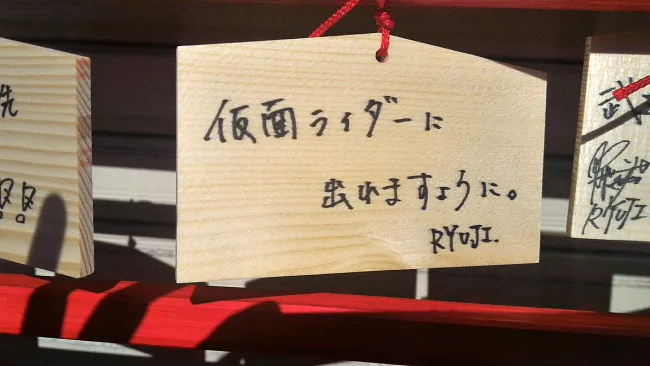 仮面ライダーに
出れますように。
RYUJI.
洗
武
RYUJI